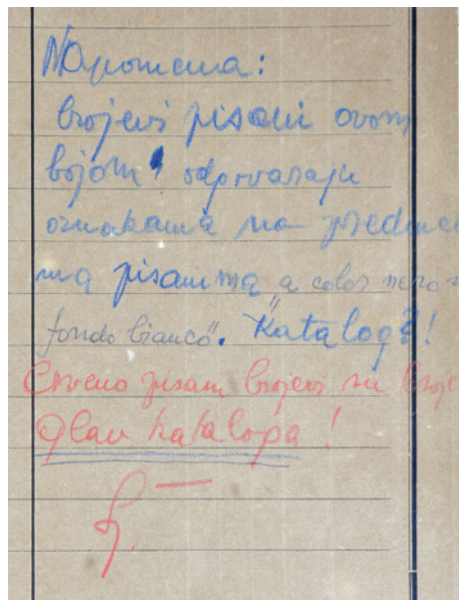 Napomena:
brojevi pisani ovom
bojom odgovaraju
oznakama na predme
ma pisanima "a color nero
fondo bianco". Katalog!
Crveno pisani brojevi su broje
Glav kataloga!